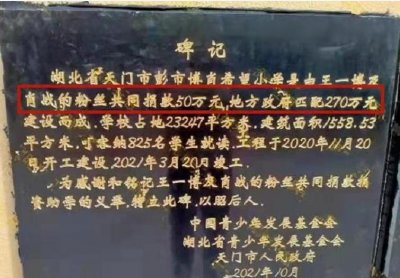 碑记
湖北省天门市彭市博肖希望小学是由王一博及
肖战的粉丝共同捐款50万元,地方政府匹配270万元
建设而成,学校占地23247平方米,建筑面积1558.53
平方米,可容纳825名学生就读,工程于2020年11月20
日开工建设,2021年3月20竣工。
为感谢和铭记王一博及肖战的粉丝共同捐款捐
资助学的义举,特立此碑,以昭后人。
中国青少年发展基金会
湖北省青少年发展基金会
天门市人民政府
2021年10月